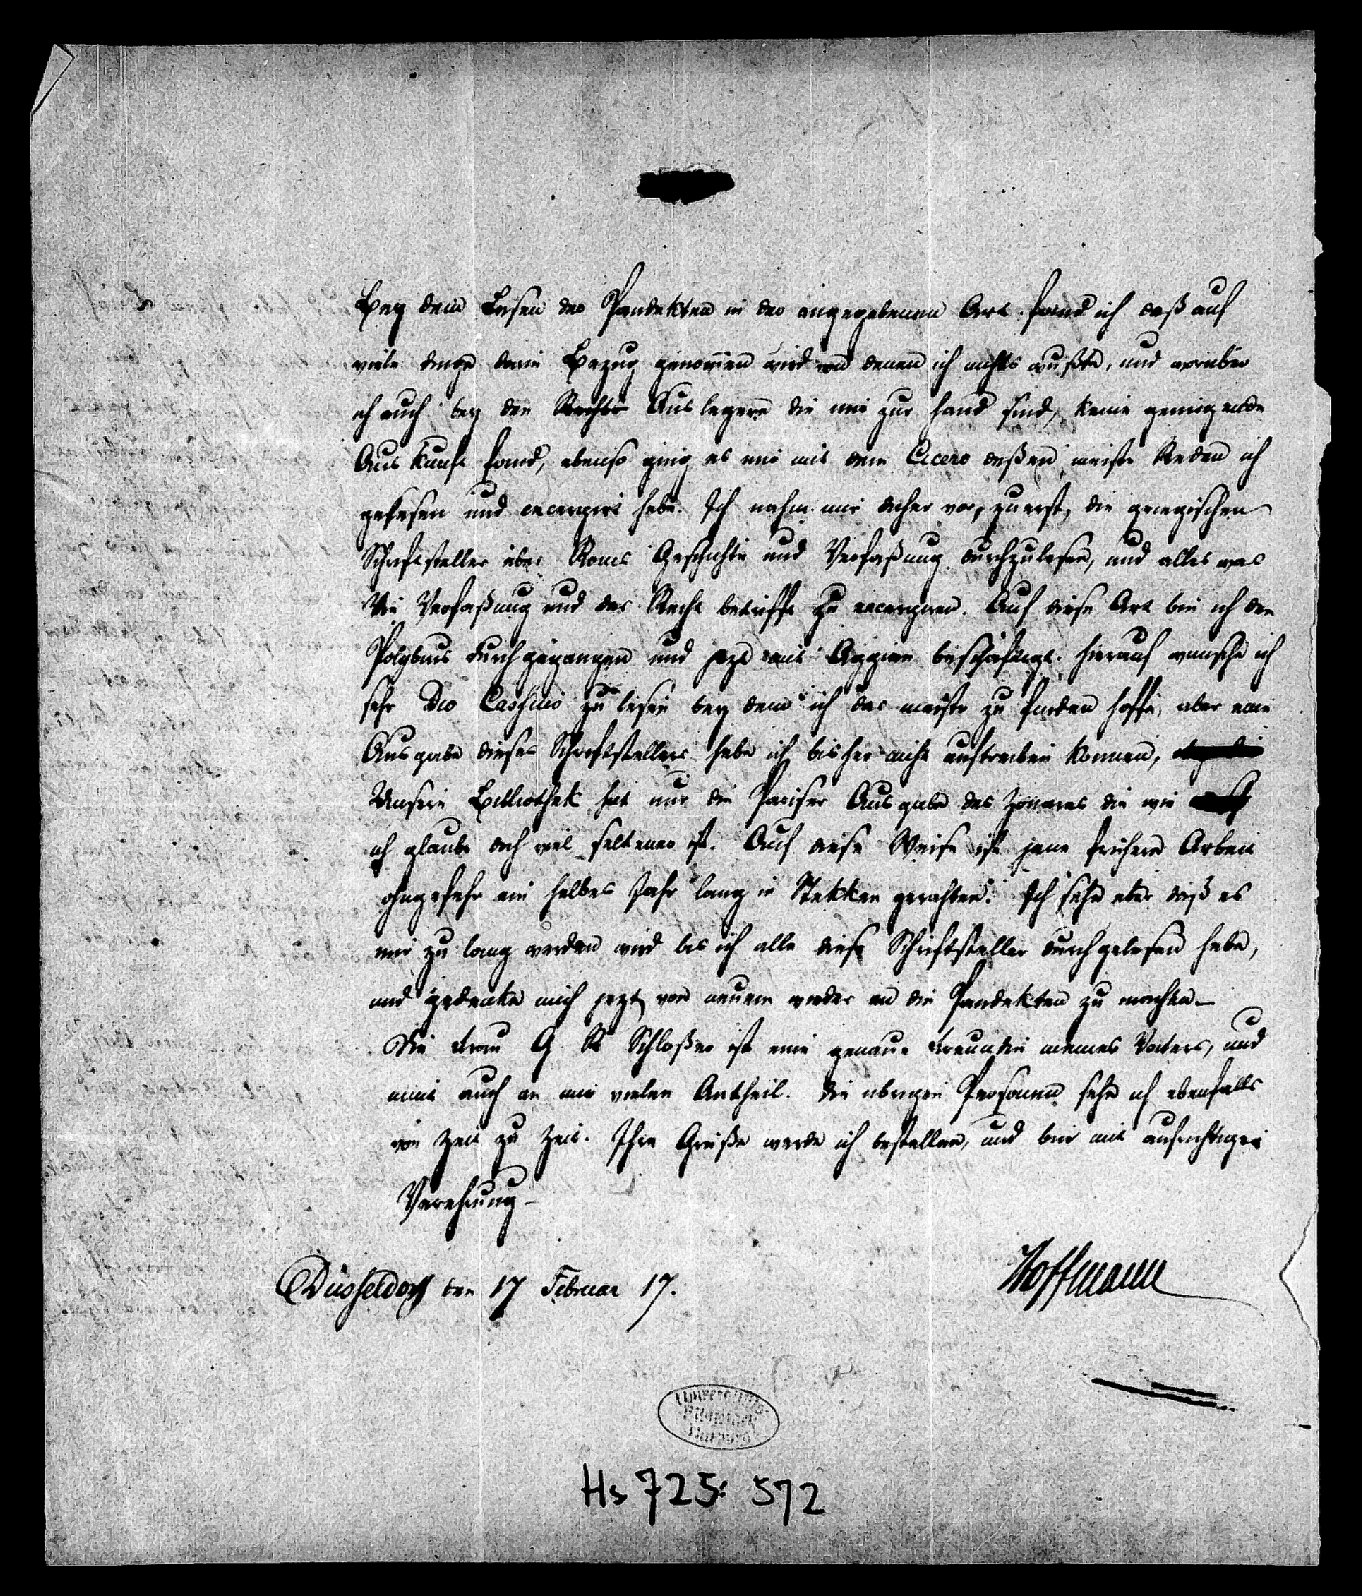 Bey dem Lesen der Pandekten in der angegebenen Art fand ich daß auf
viele dinge darin Bezug genommen wird von denen ich nichts wußte, und worüber
ich auch bey den Rechts Auslegern die mir zur hand sind, keine genügende
Auskunft fand, ebenso ging es mir mit dem Cicero deßen meiste Reden ich
gelesen und excerpirt habe. Ich nahm mir daher vor, zuerst, die griegischen
Schriftsteller über Roms Geschichte und Verfaßung durchzulesen, und alles was
die Verfaßung und das Recht betrifft zu excerpiren. Auf diese Art bin ich den
Polybius durchgegangen und jezt mit Appian beschäftigt. hierauf wünsche ich
sehr Dio Cassius zu lesen bey dem ich das meiste zu finden hoffe, aber eine
Ausgabe dieses Schriftstellers habe ich bisher nicht auftreiben können,
Unsere Bibliothek hat nur die Pariser Ausgabe des Zonaras die wie
ich glaube doch viel seltener ist. Auf diese Weise ist jene frühere Arbeit
ohngefehr ein halbes Jahr lang in Stekken gerathen. Ich sehe aber daß es
mir zu lang werden wird bis ich alle diese Schriftsteller durchgelesen habe,
und gedenke mich jezt von neuem wieder an die Pandekten zu machen –
Die Frau G. R. Schloßer ist eine genaue Freundin meines Vaters, und
nimt auch an mir vielen Antheil. die übrigen Personen sehe ich ebenfalls
von Zeit zu Zeit. Ihre Grüße werde ich bestellen, und bin mit aufrichtiger
Verehrung –
Düsseldorf den 17 Februar 17.
Hoffmann
Universitäts-
Bibliothek
Marburg
Hs 725: 572